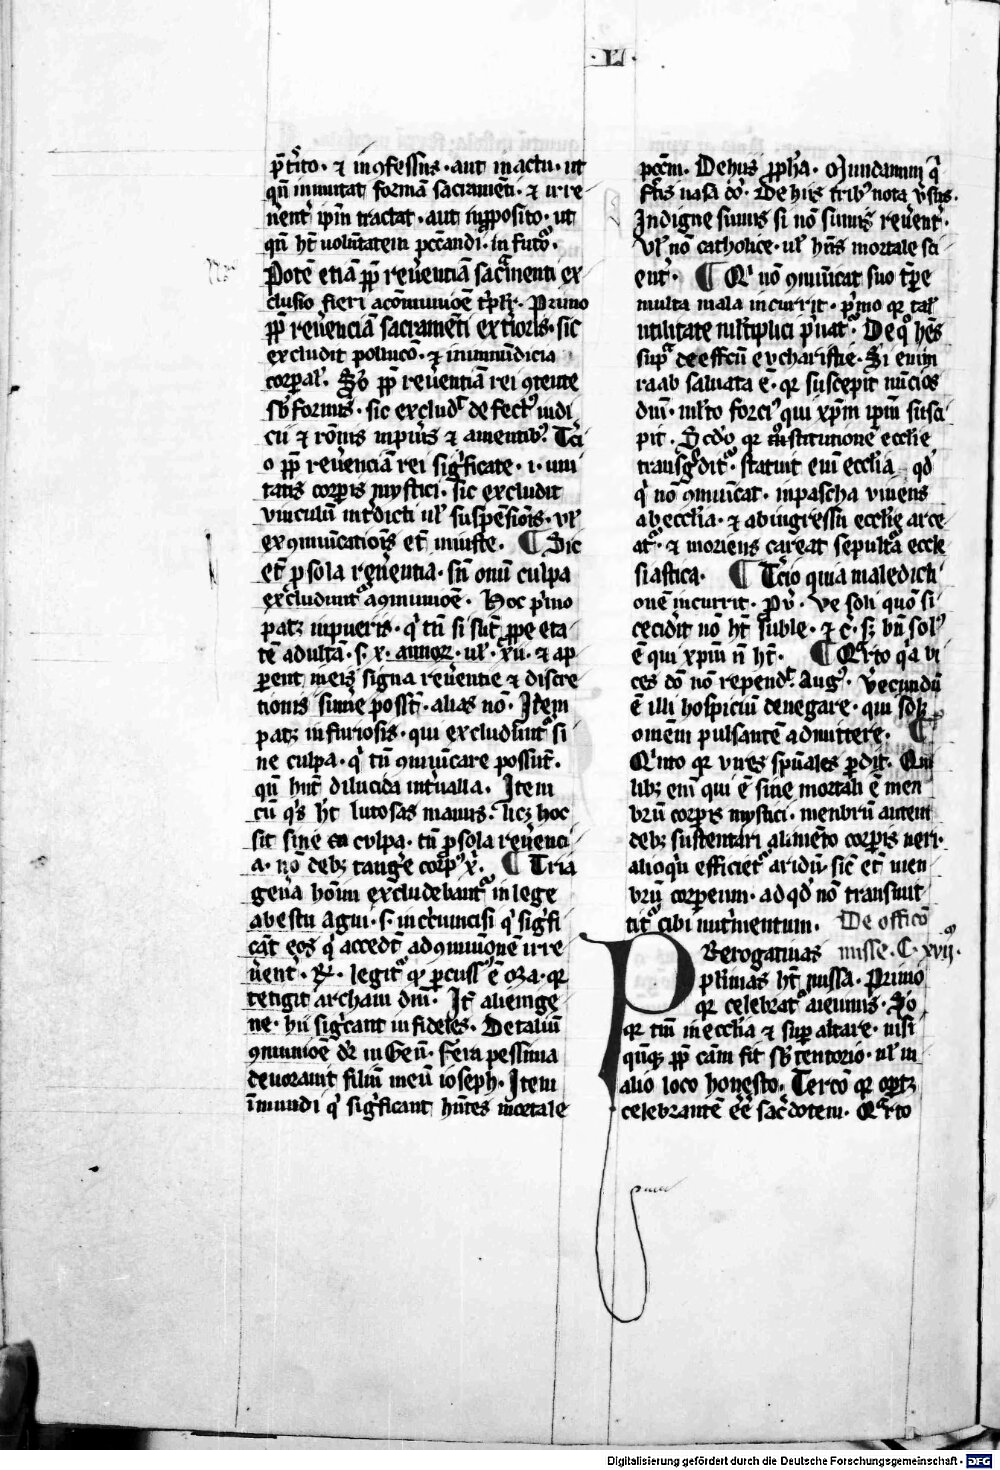 · L ·
p̄t̄ito · ⁊ inꝯfessus · aut in actu · ut
qn̄ inmutat formā sacramēti · ⁊ irre-
ūent̄ ip̄m tractat · aut in ꝓposito · ut
qn̄ ht̄ uolūtatem pc̄candi · in fut̄o ·
Potē etiā ꝓp̄ reūentiā sac̄menti ex-
clusio fieri a cōmunioē t̄plr̄ · Primo
ꝓp̄ reūenciā sacramēti ext̄ioris · sic
excludit pollucō · ⁊ inmūdicia
corꝑal̄ · S̄o ꝓp̄ reūentiā rei ꝯtente
sb̄ formis · sic excludit̄ defect᷒ iudi
cii ⁊ rōnis in pūis ⁊ amentib᷒ · T̄ci
o ꝓp̄ reūenciā rei sigͥficate · i · uni
tatis corꝑis mystici · sic excludit
vinculū int̄dicti ul̄ suspensiōis · vl̄
exꝯmūicatiōis et̄ iniuste · ¶ Sic
et̄ ꝑ sola reūentia · sn̄ om̄i culpa
excludunt̄ a ꝯmunioē · Hoc pͥmo
patꝫ in pueris · qͥ tn̄ si sūt ꝓpe eta
tē adultā · s · x · annoꝝ · ul̄ · xii · ⁊ ap
ꝑent in eis signa reūentie ⁊ discre
tionis sume poss̄t · alias nō · Item
patꝫ in furiosis · qui excludūnt᷑ si
ne culpa · qͥ tn̄ ꝯmūicare possūt ·
qn̄ hn̄t dilucida int̄ualla · Item
cū qͥs ht̄ lutosas manus · licꝫ hoc
sit sine culpa · tn̄ ꝑ sola reūenci
a · nō debꝫ tangͤe corp᷒ x̄ · ¶ Tria
geūa hoīm excludebant᷑ in lege
ab esu agni · s · incͥcuncisi qͥ sigͥfi
cāt eos qͥ accedt̄ ad ꝯmūionē irre
ūent̄ · legit᷑ qͥ ꝑcuss᷒ ē oza · qꝛ
tetigit archam dn̄i · It̄ alienige
ne · hii sigͥcant infideles · De taliū
ꝯmunioē dr̄ in Gen̄ · Fera pessima
deuorauit filiū meū ioseph · Item
īmundi qͥ sigͥficant hn̄tes mortale
pcc̄m · De hiis ꝓph̄a · Mundamini qͥ
f̄tis uasa do᷒ · De hiis trib᷒ nota v̄sus ·
Indigne sumis si nō sumis reūent̄ ·
Vl̄ nō catholice · ul̄ hn̄s mortale sci
ent̄ · ¶ Qͥ nō ꝯmūicat suo t̄pe
multa mala incurrit · pͥmo qꝛ tal̄
utilitate ml̄tiplici pͥuat᷑ · De qͦ hēs
supͣ de effc̄u eucharistie · Si enim
raab saluata ē · qꝛ suscepit nūcios
dn̄i · ml̄to forci᷒ qui xp̄m ip̄m susci
pit · Sc̄do qꝛ institutionē ecclie
transgͥdit᷑ · statuit eni ecclia · qd̄
qͥ nō ꝯmūicat · in pascha viuens
ab ecclia · ⁊ ab ingressu ecclie arce
at᷑ · ⁊ moriens careat sepultͣ eccle
siastica · ¶ T̄cio quia maledicti
onē incurrit · Pͬv̄ · Ve soli quoꝫ si
ceciderit nō ht̄ suble · ⁊ c̄ · sꝫ bn̄ sol᷒
ē qui xp̄m n̄ ht̄ · ¶ Qͣrto qͥa vi
ces do nō repend᷑ · Aug᷒ · Verecundū
ē illi hospiciū denegare · qui solꝫ
omēm pulsantē admittere · ¶
Qͥnto qꝛ vires spūales ꝑdit · Qui
libꝫ eni qui ē sine mortali ē mem
brū corꝑis mystici · membrū autem
debꝫ sustentari alimēto corꝑis ueri ·
alioqͥn efficiet᷑ aridū · sic̄ et̄ mem
brū corꝑeum · ad qd̄ nō transmit
tit᷑ cibi nutͥmentum · De officō
Prerogatiuas misse · C · xvii ·
plimas ht̄ missa · Primo
qꝛ celebrat᷑ a ieiunis · S̄o
qꝛ tm̄ in ecclia ⁊ suꝑ altare · nisi
qn̄qꝫ ꝓp̄ cām fit sb̄ tentorio · ul̄ in
alio loco honesto · Tercō qꝛ oꝑtꝫ
celebrantē eē sac̄dotem · Qͣrto